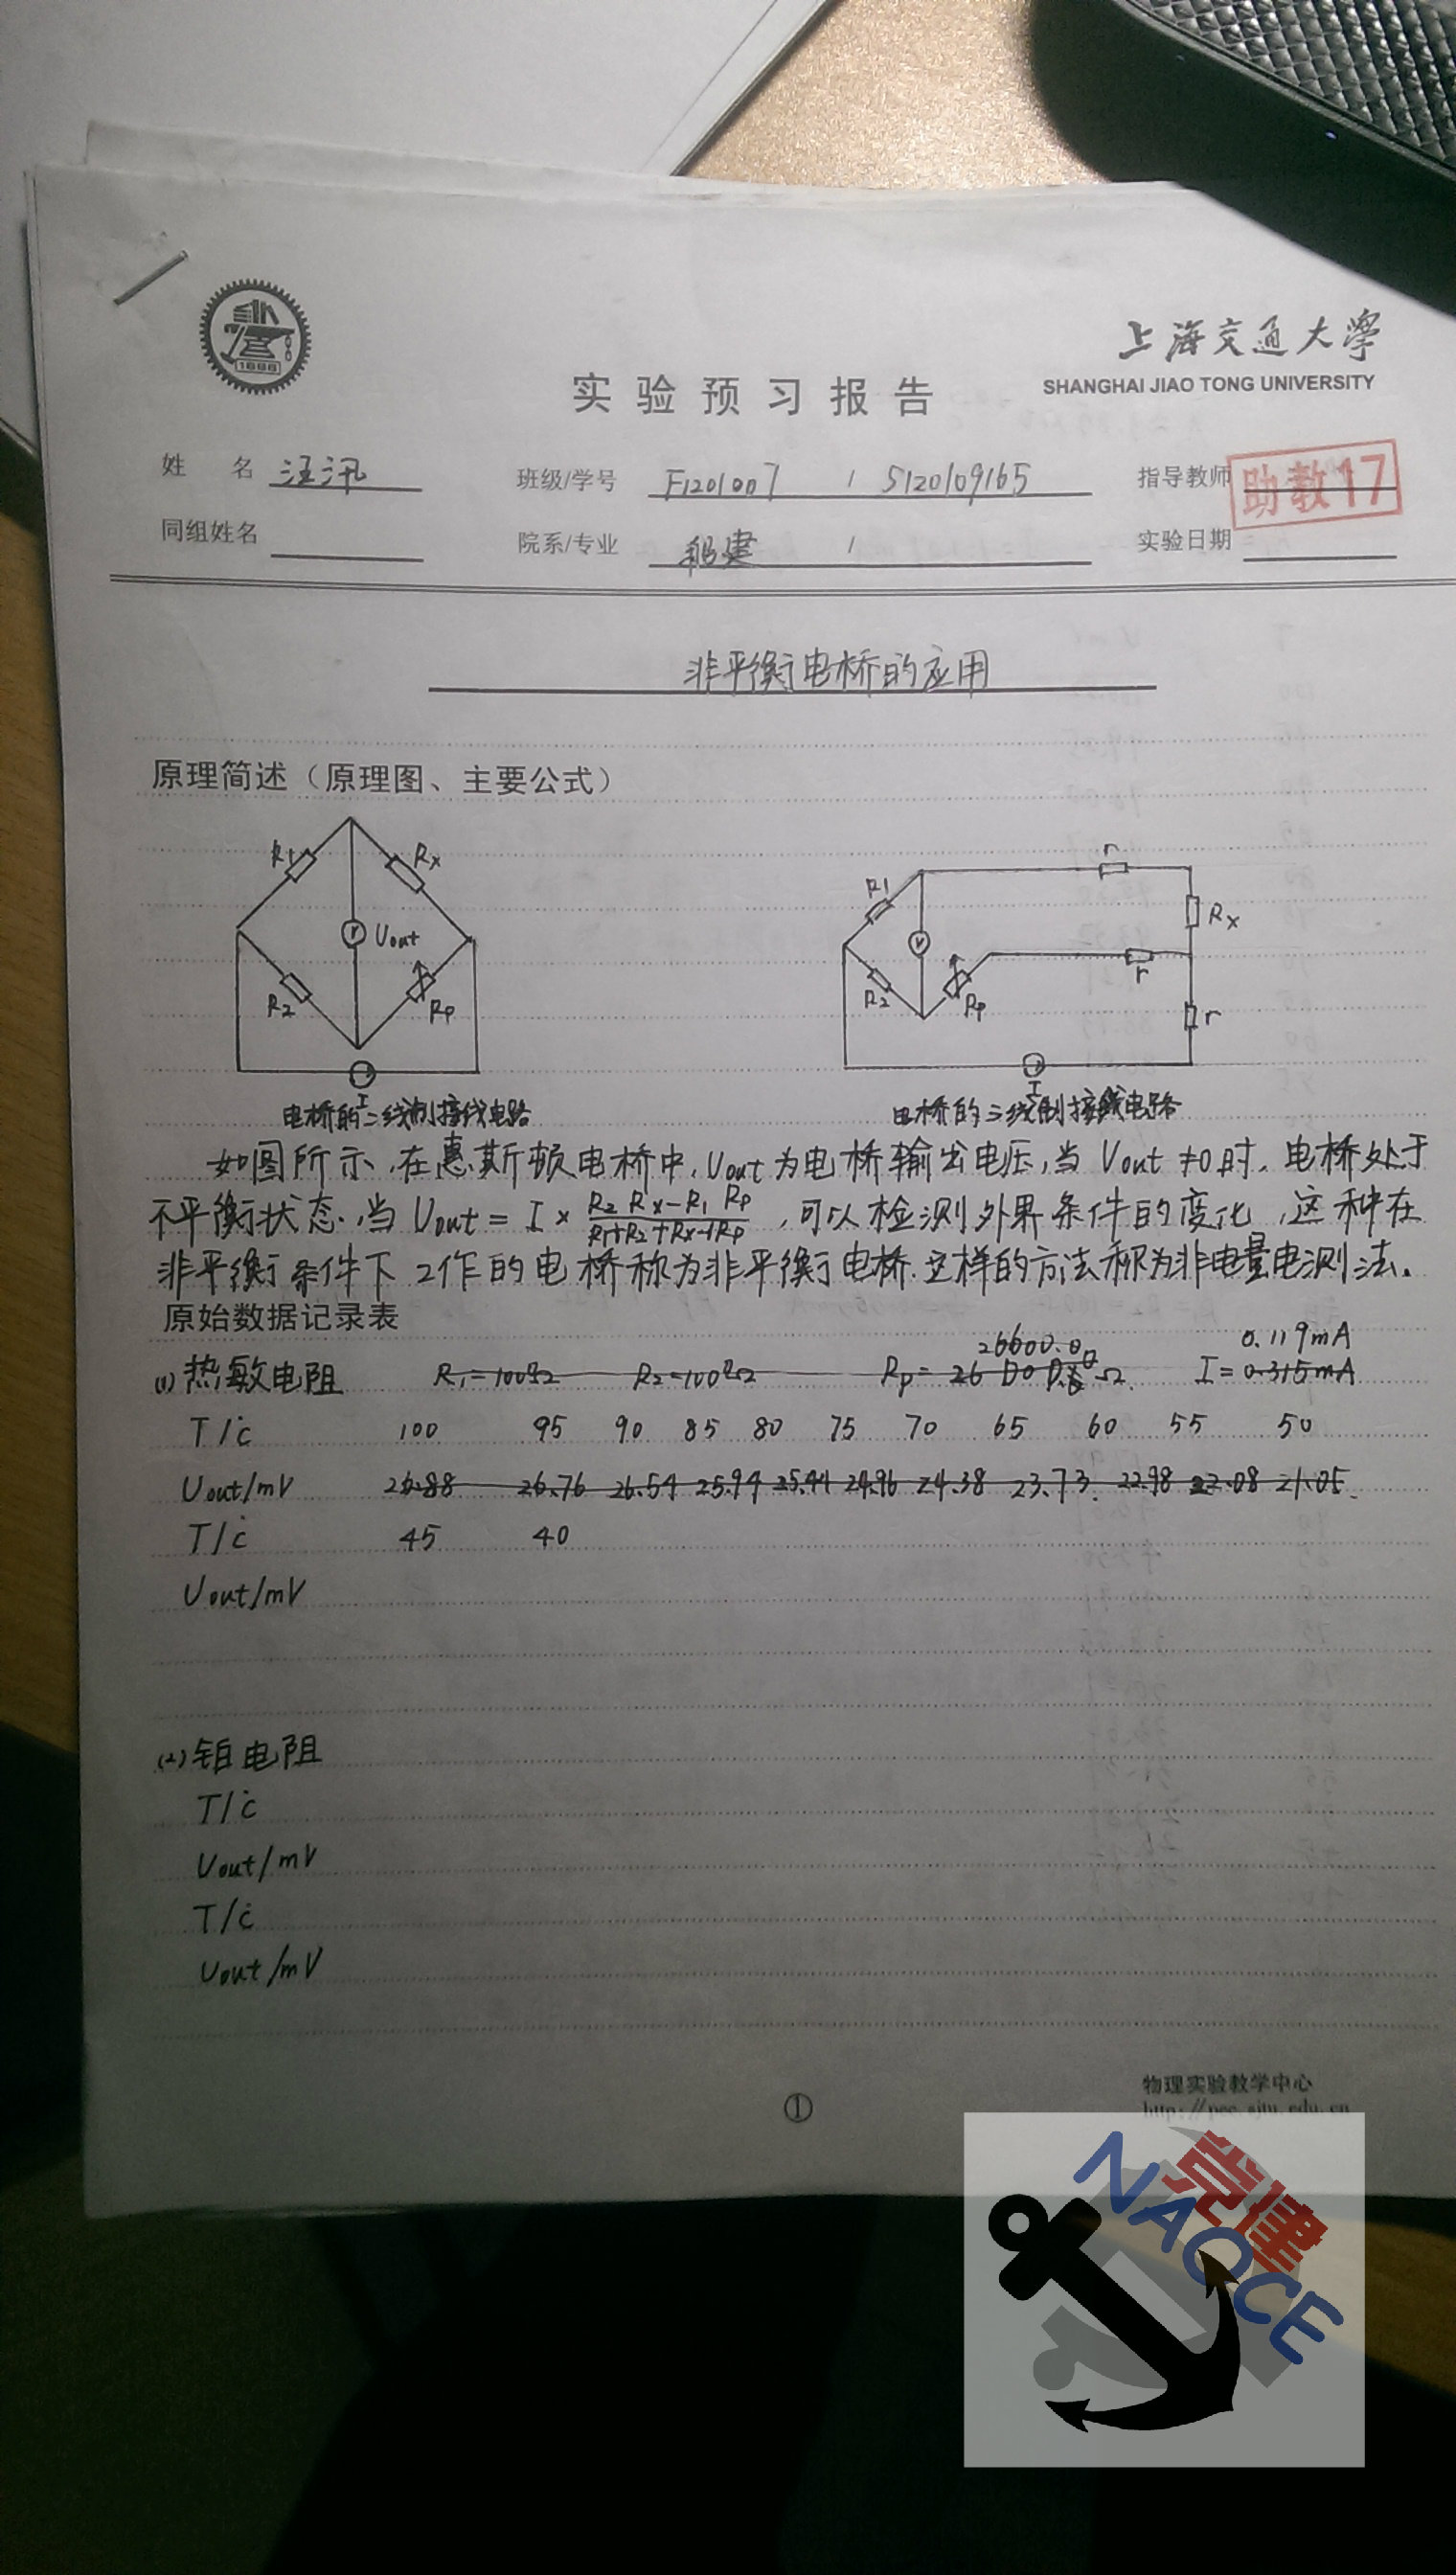 1896
上海交通大學
SHANGHAI JIAO TONG UNIVERSITY
实验预习报告
姓 名 汪汛 班级/学号 F1201007 / 5120109165 指导教师 助教17
同组姓名 院系/专业 船建 / 实验日期
非平衡电桥的应用
原理简述（原理图、主要公式）
R1 Rx
V Uout
R2 Rp
I
电桥的二线制接线电路
r
R1 Rx
V r
R2 Rp r
I
电桥的三线制接线电路
如图所示,在惠斯顿电桥中,Uout为电桥输出电压,当Uout≠0时,电桥处于
不平衡状态.当Uout = I × (R2 Rx - R1 Rp)/(R1+R2+Rx+Rp) ,可以检测外界条件的变化,这种在
非平衡条件下工作的电桥称为非平衡电桥.这样的方法称为非电量电测法.
原始数据记录表
26600.0 0.119mA
(1)热敏电阻 R1=100Ω R2=100Ω Rp= Ω I=0.315mA
T/℃ 100 95 90 85 80 75 70 65 60 55 50
Uout/mV 26.88 26.76 26.54 25.94 25.44 24.96 24.38 23.73 22.98 22.08 21.05
T/℃ 45 40
Uout/mV
(2)铂电阻
T/℃
Uout/mV
T/℃
Uout/mV
①
物理实验教学中心
http://pec.sjtu.edu.cn
党建
NAOCE